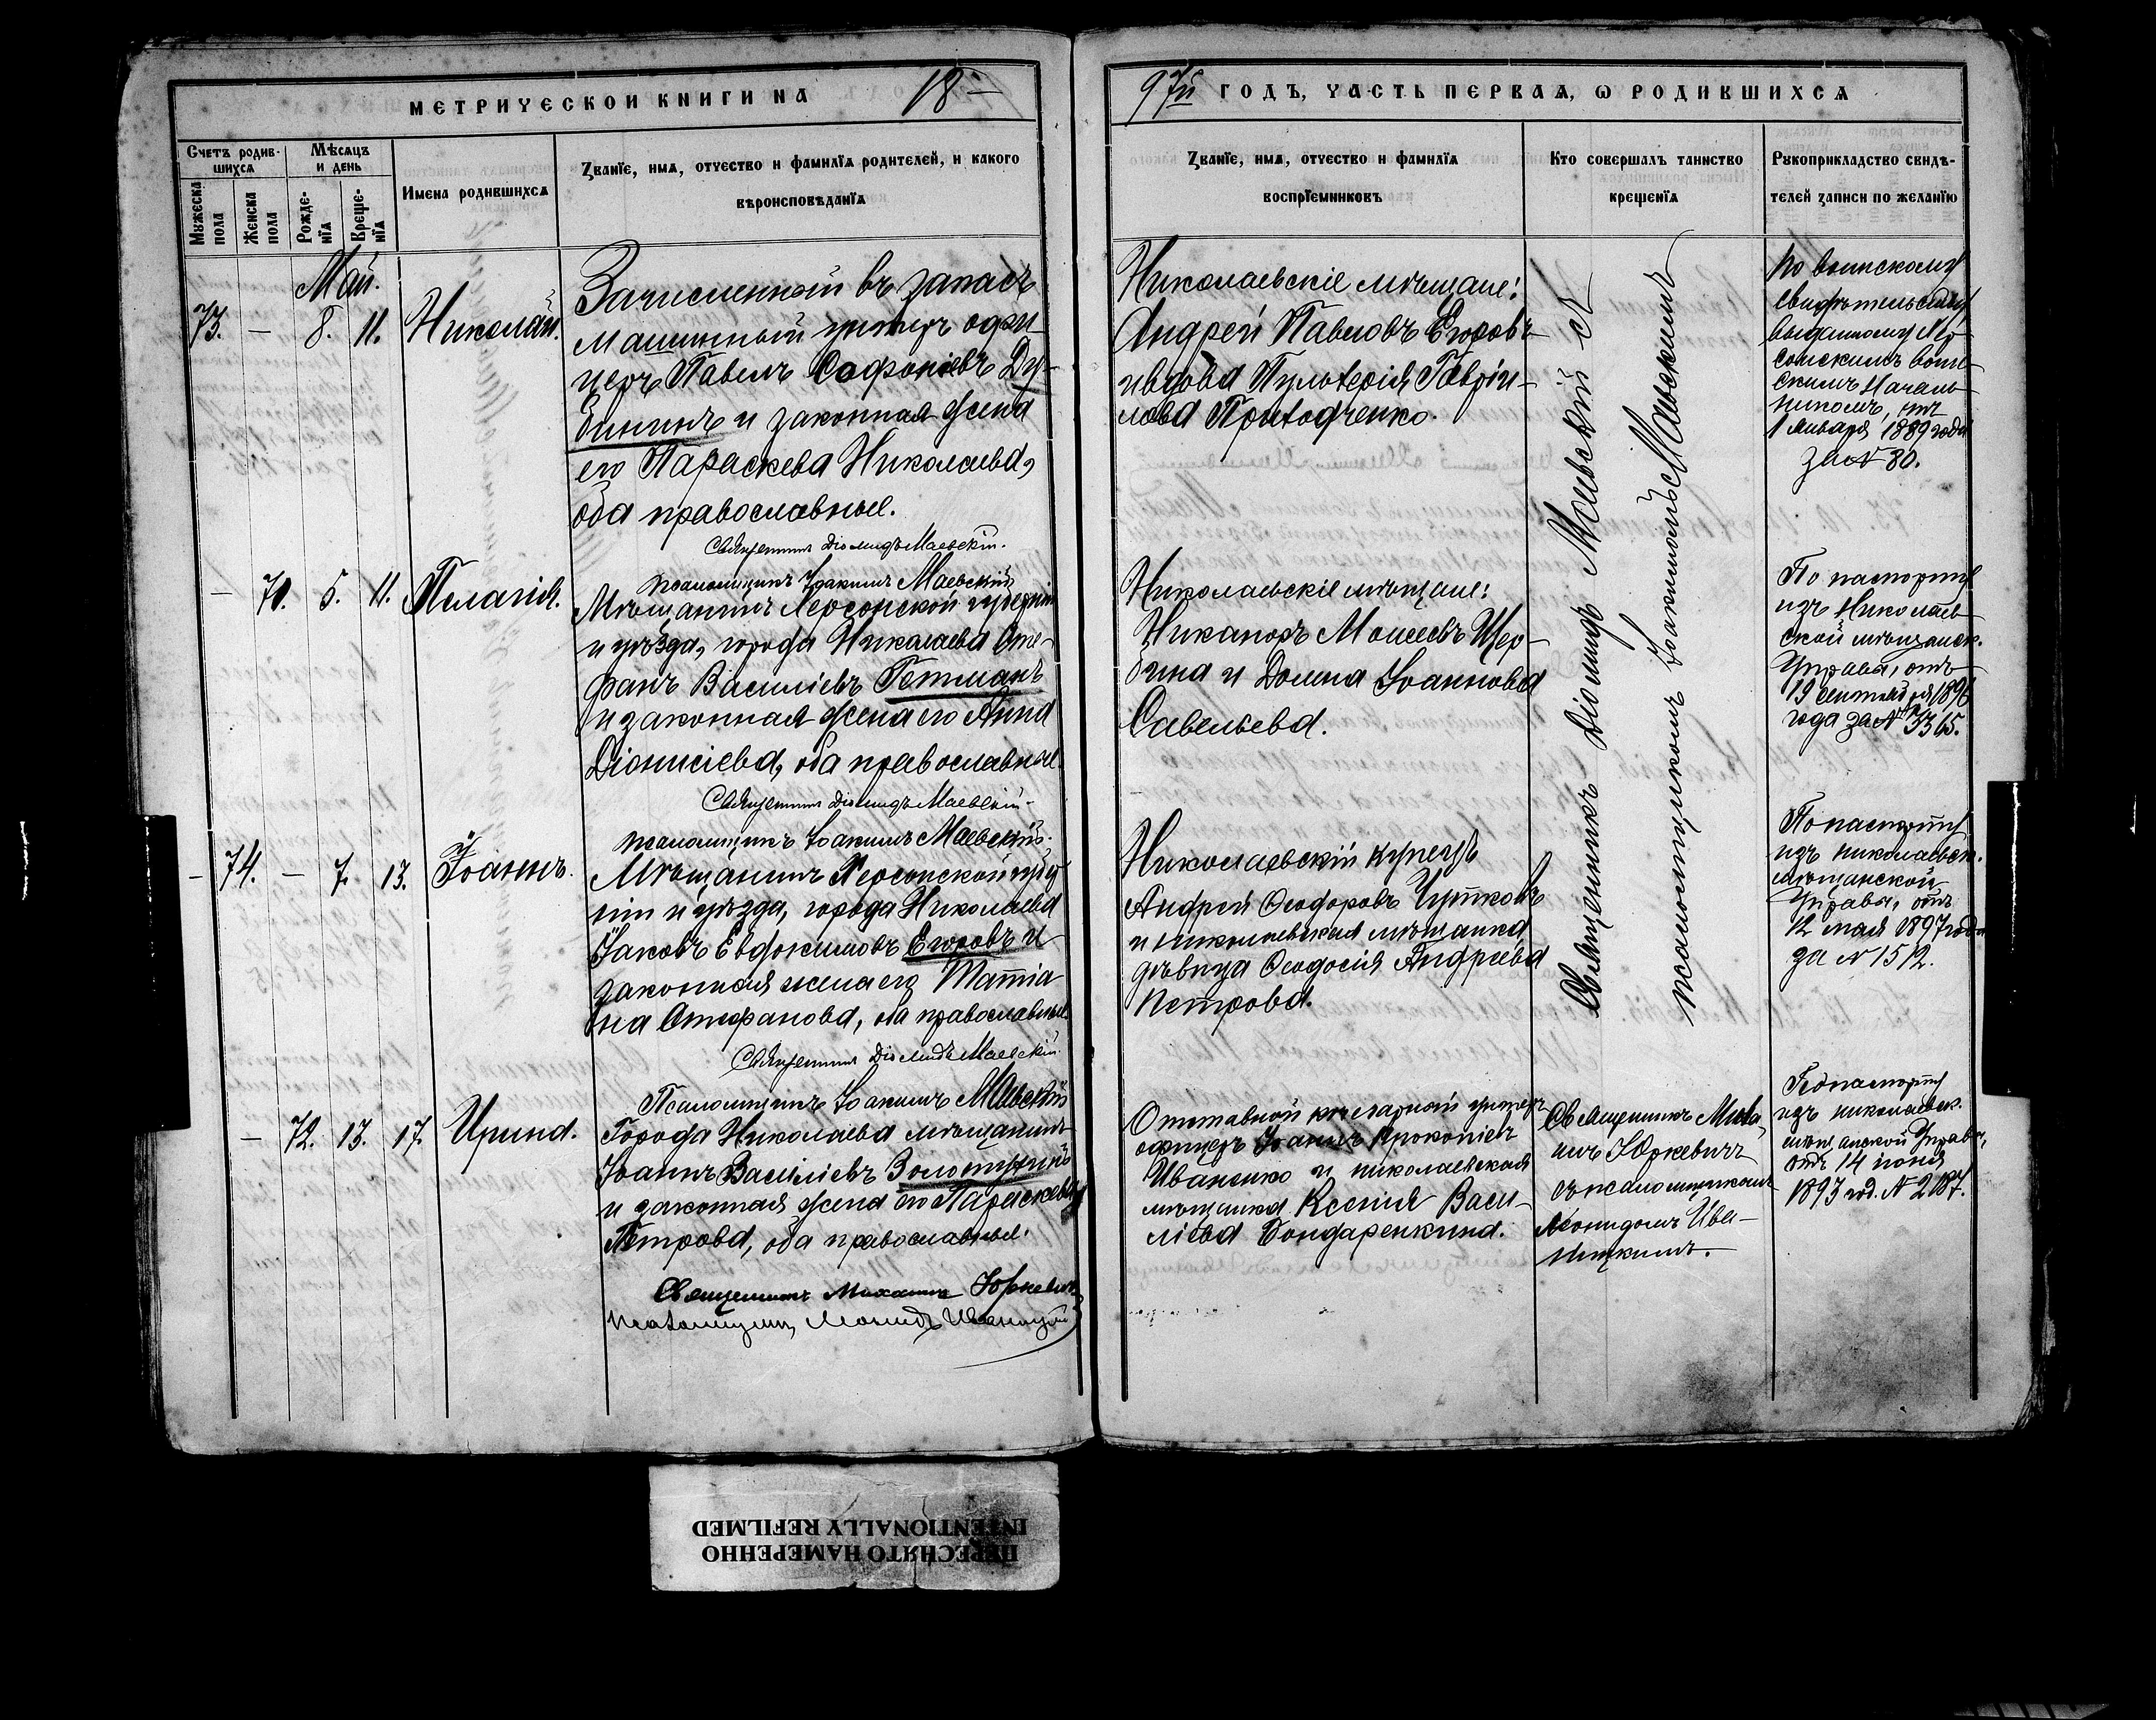 МЕТРИЧЕСКОЙ КНИГИ НА 18
97й ГОДЪ, ЧАСТЬ ПЕРВАЯ, Ѡ РОДИВШИХСЯ
Счетъ родив-
шихся
Мѣсяцъ
и день
Мужеска
пола
Женска
пола
Рожде-
нїя
Креще-
нїя
Имена родившихся
Званїе, имя, отчество и фамилїя родителей, и какого
вѣроисповѣданїя
Званїе, имя, отчество и фамилїя
воспрїемниковъ
Кто совершалъ таинство
крещенїя
Рукоприкладство свидѣ-
телей записи по желанїю
Май.
73. — 8. 11. Николай.
Зачисленный въ запасъ
машинный унтеръ офи-
церъ Павелъ Софоніевъ Ду-
бининъ и законная жена
его Параскева Николаева,
оба православные.
Священникъ Діомидъ Маевскій.
Псаломщикъ Іоакимъ Маевскій
Николаевскіе мѣщане:
Андрей Павловъ Егоровъ
и вдова Пульхерія Гаврі-
лова
По воинскому
свидѣтельству
выданному Хер-
сонскимъ воин-
скимъ Началь-
никомъ, отъ
1 января 1889 года
за № 80.
— 71. 5. 11. Пелагія.
Мѣщанинъ Херсонской губерніи
и уѣзда, города Николаева Сте-
фанъ Василіевъ Гетманъ
и законная жена его Анна
Діонисіева, оба православные.
Священникъ Діомидъ Маевскій
Псаломщикъ Іоакимъ Маевскій.
Николаевскіе мѣщане:
Никаноръ Моисеевъ Щер-
бина и Домна Іоаннова
Савельева.
По паспорту
изъ Николаев-
ской мѣщанск.
Управы, отъ
19 сентября
года за № 3365.
74. — 7. 13. Іоаннъ.
Мѣщанинъ Херсонской губер-
ніи и уѣзда, города Николаева
Іаковъ Евдокимовъ Егоровъ и
законная жена его Татіа-
на Стефанова, оба православные.
Священникъ Діомидъ Маевскій
Псаломщикъ Іоакимъ Маевскій
Николаевскій купецъ
Андрей Ѳеодоровъ
и николаевская мѣщанка
дѣвица Ѳеодосія Андреева
Петрова.
По паспорту
изъ николаевск.
мѣщанской
Управы, отъ
12 мая 1897 года
за № 1512.
Священникъ Діомидъ Маевскій съ
псаломщикомъ Іоакимомъ Маевскимъ
— 72. 13. 17. Ирина.
Города Николаева мѣщанинъ
Іоаннъ Василіевъ
и законная жена его Параскева
Петрова, оба православные.
Священникъ Михаилъ Юркевичъ
Псаломщикъ Леонидъ Иваницкій
Отставной кочегарный унтеръ
офицеръ Іоаннъ Прокопіевъ
Иваненко и николаевская
мѣщанка Ксенія Васи-
ліева Бондаренкина.
Священникъ Миха-
илъ Юркевичъ
съ псаломщикомъ
Леонидомъ Ива-
ницкимъ.
По паспорту
изъ николаевск.
мѣщанской Управы,
отъ 14 іюня
1893 год. № 2187.
ПЕРЕСНЯТО НАМЕРЕННО
INTENTIONALLY REFILMED